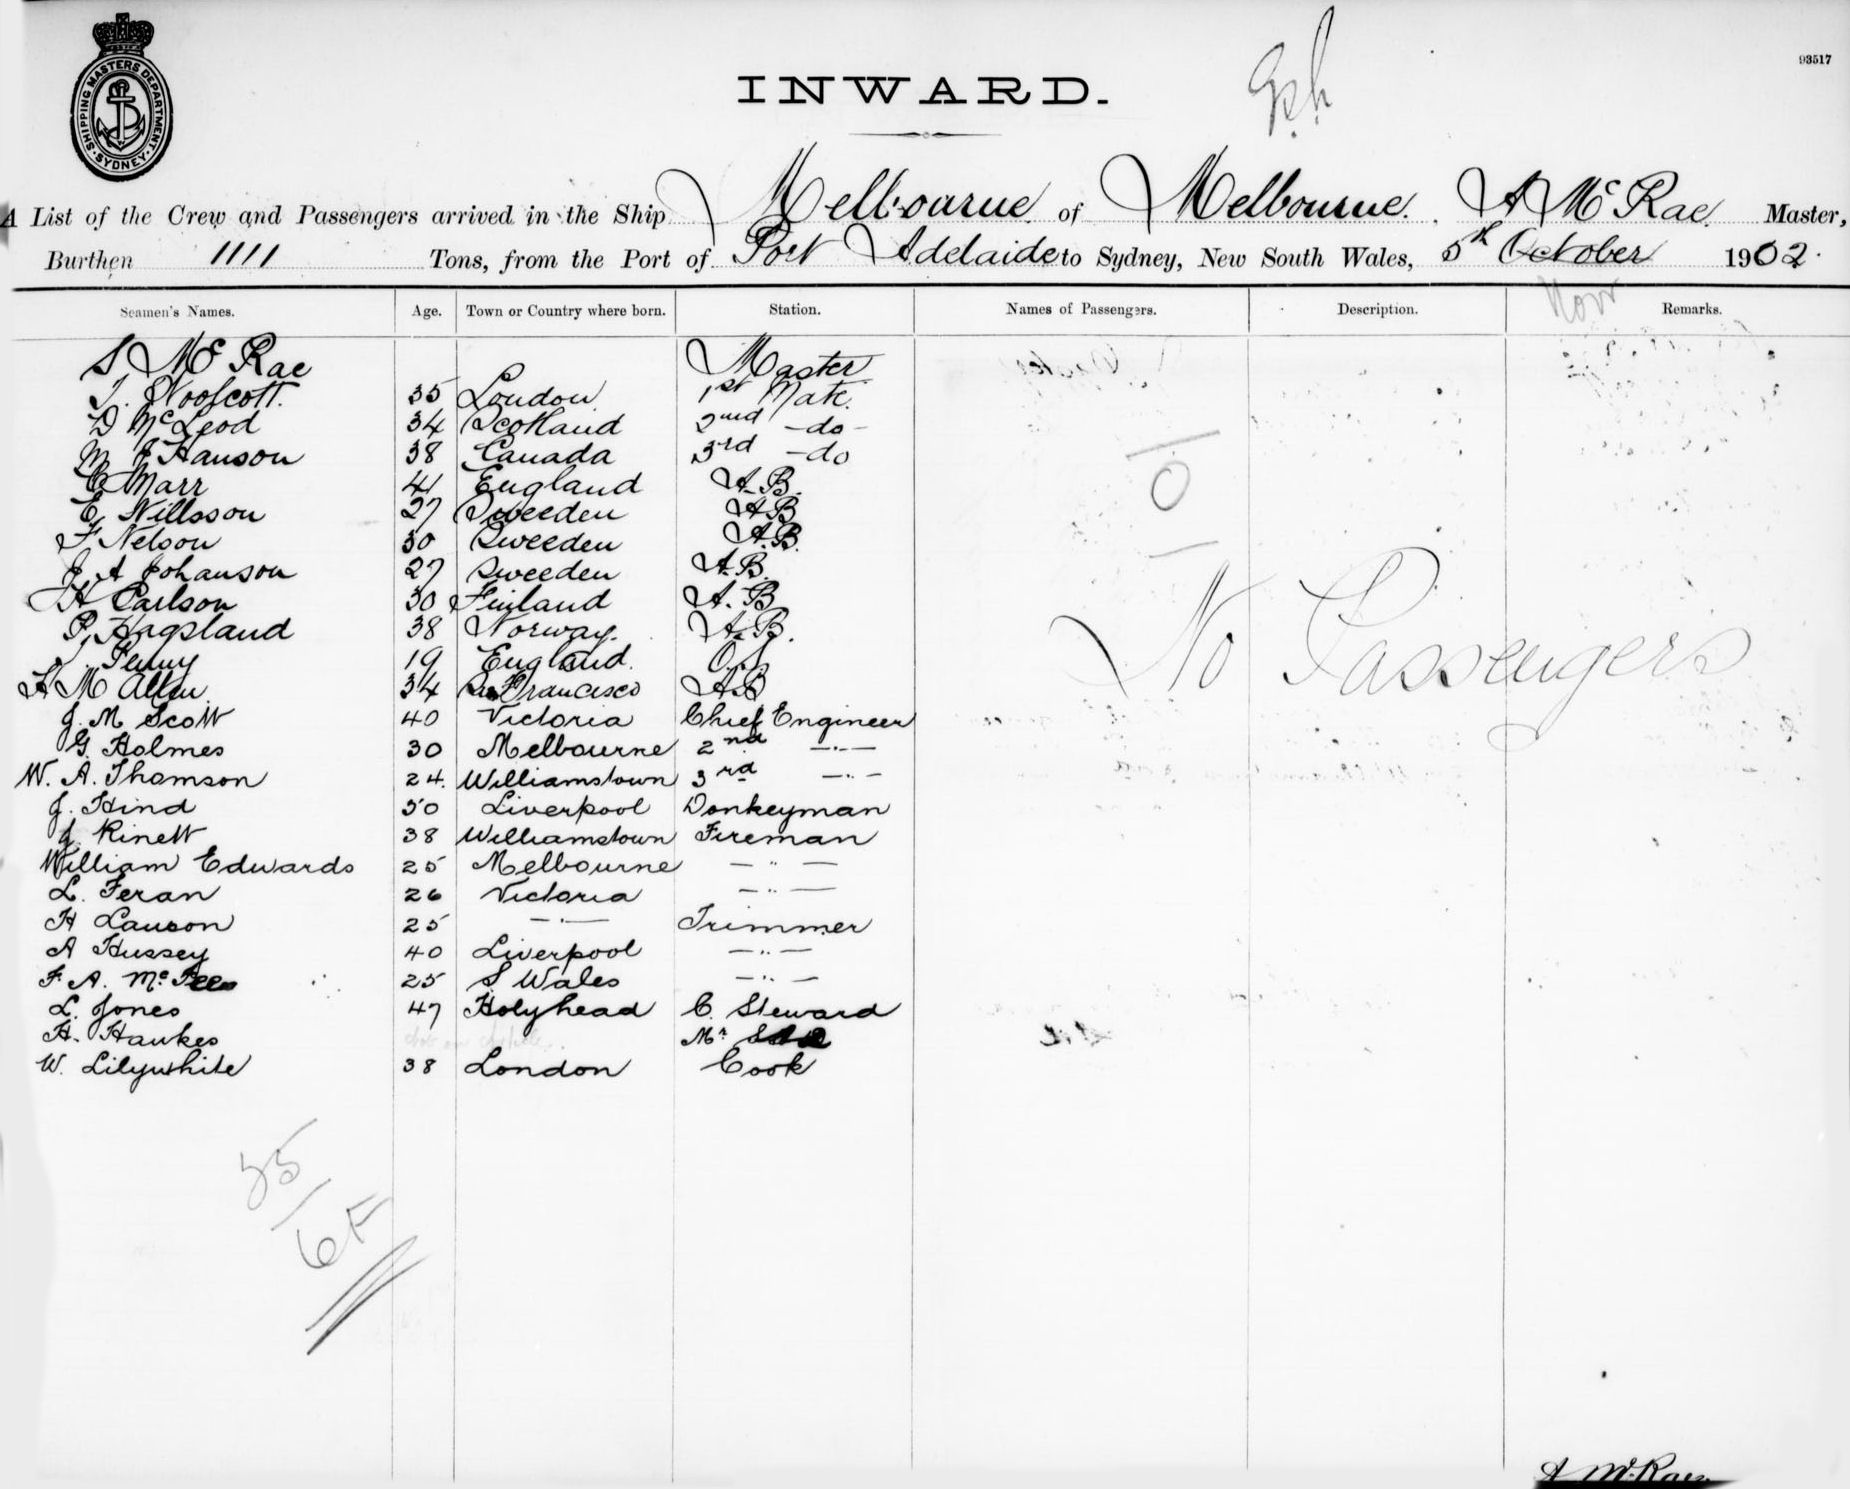 SHIPPING MASTERS DEPARTMENT. SYDNEY
93517
INWARD.
A List of the Crew and Passengers arrived in the Ship Melbourne of Melbourne. A McRae Master,
Burthen 1111 Tons, from the Port of Port Adelaide to Sydney, New South Wales, 5th October 1902.
Nov
Seamen's Names. Age. Town or Country where born. Station. Names of Passengers. Description. Remarks.
S McRae Master
35 London 1st Mate.
D McLeod 34 Scotland 2nd -do-
M J Hanson 38 Canada 3rd -do
C Marr 41 England A.B.
E. Nillsson 27 Sweeden AB
F Nelson 30 Sweeden A.B.
J A Johanson 27 Sweeden A.B.
H Carlson 30 Finland A.B
P. Hagsland 38 Norway. A.B.
J. Penny 19 England. O.S
No Passengers
A M Allen 34 San Francisco AB
J. M Scott 40 Victoria Chief Engineer
G. Holmes 30 Melbourne 2nd —"—
W. A. Thomson 24. Williamstown 3rd —"—
J. Hind 50 Liverpool Donkeyman
J. Rinett 38 Williamstown Fireman
William Edwards 25 Melbourne — " —
L. Feran 26 Victoria — " —
H Lawson 25 — " — Trimmer
A Hussey 40 Liverpool — " —
F. A. Mc 25 S Wales — " —
L. Jones 47 Holyhead C. Steward
H. Hawkes Mr
W. Lilywhite 38 London Cook
35
6F
A McRae